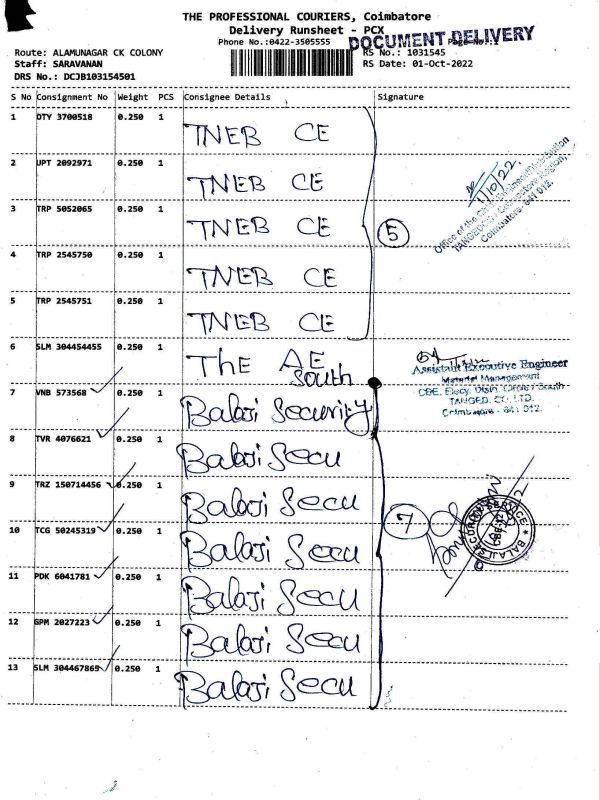 THE PROFESSIONAL COURIERS, Coimbatore
Delivery Runsheet - PCX
Phone No.:0422-3505555
DOCUMENT DELIVERY
Route: ALAMUNAGAR CK COLONY
RS No.: 1031545
Staff: SARAVANAN
RS Date: 01-Oct-2022
DRS No.: DCJB103154501
S No Consignment No Weight PCS Consignee Details Signature
1 DTY 3700518 0.250 1 TNEB CE
2 UPT 2092971 0.250 1 TNEB CE
1/10/22
3 TRP 5052065 0.250 1 TNEB CE
5
Office of the
Coimbatore - 641 012.
4 TRP 2545750 0.250 1 TNEB CE
5 TRP 2545751 0.250 1 TNEB CE
6 SLM 304454455 0.250 1 The AE South
Assistant Executive Engineer
Material Management
TANGED. CO. LTD.
Coimbatore - 641 012.
7 VNB 573568 0.250 1 Balaji Security
8 TVR 4076621 0.250 1 Balaji Secu
9 TRZ 150714456 0.250 1 Balaji Secu
7
BALAJI SECURITY SERVICE
10 TCG 50245319 0.250 1 Balaji Secu
11 PDK 6041781 0.250 1 Balaji Secu
12 GPM 2027223 0.250 1 Balaji Secu
13 SLM 304467869 0.250 1 Balaji Secu